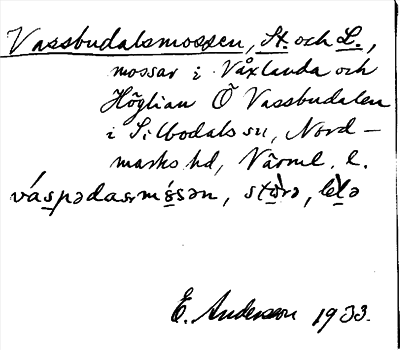 Vassbudalsmossen, St. och L.,
mossar i Våxlanda och
Höglian Ö Vassbudalen
i Silbodals sn, Nord-
marks hd, Värml. l.
váspədasmósən, stòrə, lèlə
E. Anderson 1933.